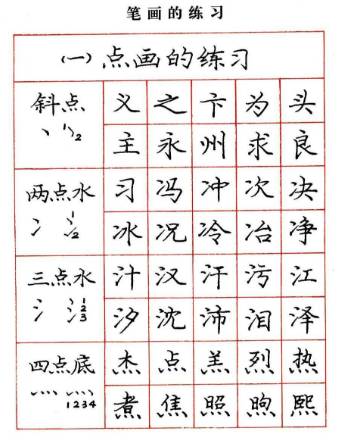 笔画的练习
(一)点画的练习
斜点 义 之 卞 为 头
12 主 永 州 求 良
两点水 习 冯 冲 次 决
冫 12 冰 况 冷 冶 净
三点水 汁 汉 汗 污 江
氵 123 汐 沈 沛 泪 泽
四点底 杰 点 羔 烈 热
灬 1234 煮 焦 照 煦 熙